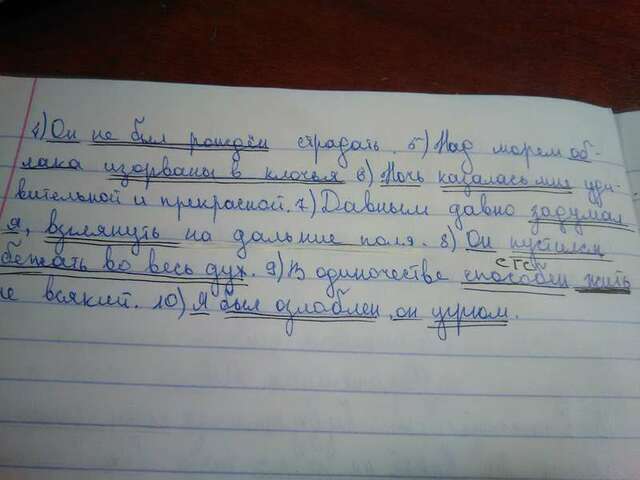 4) Он не был рождён страдать. 5) Над морем об-
лака изорваны в клочья 6) Ночь казалась мне уди-
вительной и прекрасной. 7) Давным давно задумал
я, взглянуть на дальние поля. 8) Он пустился
бежать во весь дух. 9) В одиночестве способен жить
СГС
не всякий. 10) Я был озлоблен, он угрюм.